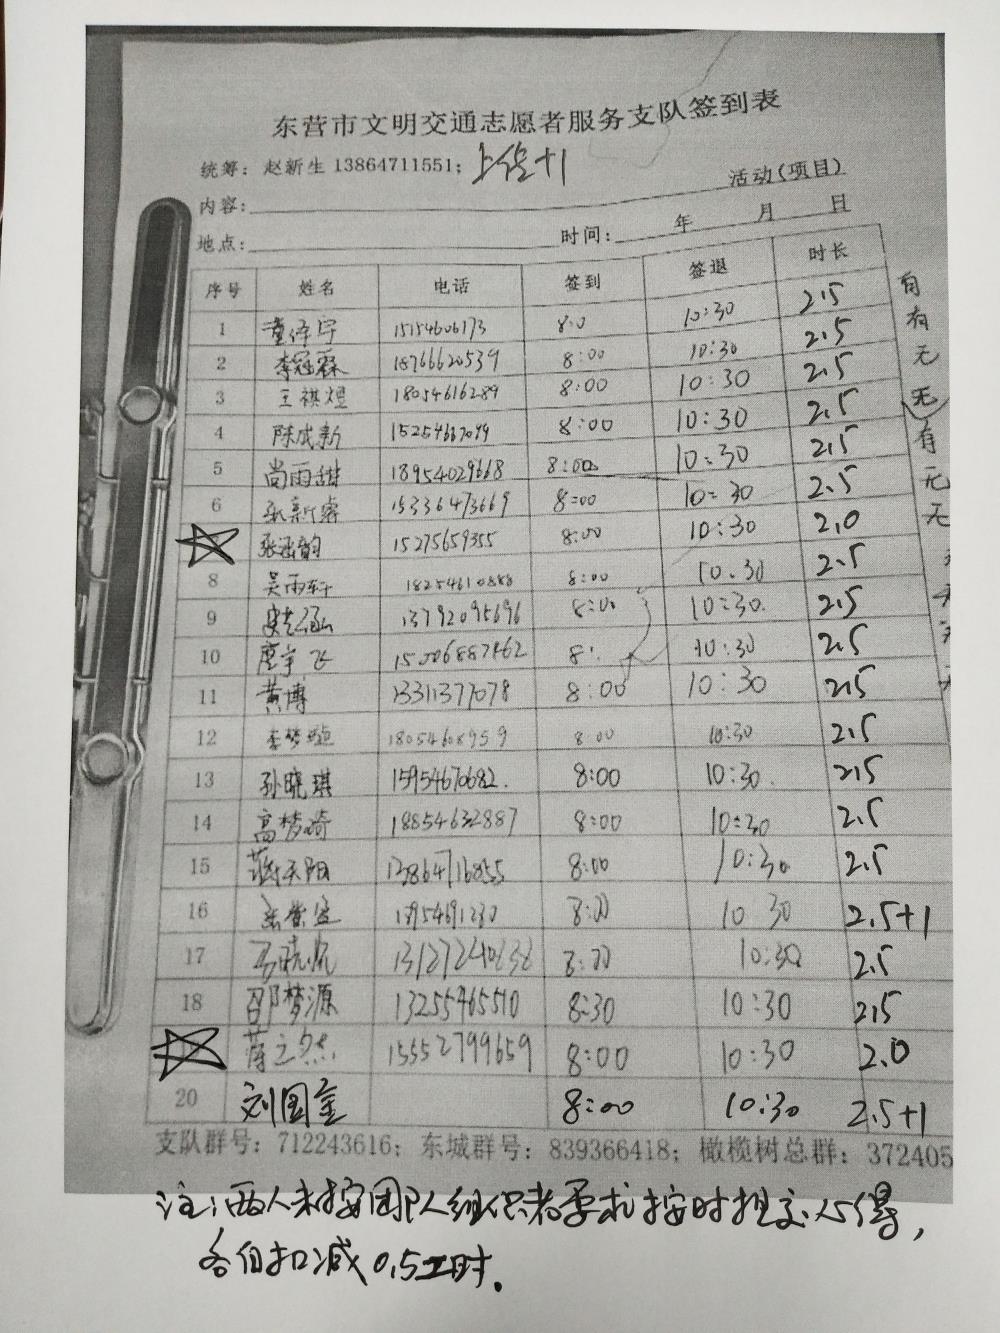 东营市文明交通志愿者服务支队签到表
统筹：赵新生 13864711551；上传+1
活动(项目)
内容：
地点： 时间： 年 月 日
序号 姓名 电话 签到 签退 时长
1 15154606173 8:0 10:30 2.5
2 李冠霖 18766620539 8:00 10:30 2.5
3 王祺煜 18054616289 8:00 10:30 2.5
4 陈成新 8:00 10:30 2.5
5 尚雨甜 18954029668 8:00 10:30 2.5
6 张新睿 15336473669 8:00 10:30 2.5
张涵韵 15275659355 8:00 10:30 2.0
8 吴雨轩 18254610888 8:00 10.30 2.5
9 13792095696 8:00 10:30. 2.5
10 15006887462 8: 10:30 2.5
11 黄博 13311377078 8:00 10:30 2.5
12 李梦璇 18054608959 8 00 10:30 2.5
13 孙晓琪 15954670682. 8:00 10:30. 2.5
14 高梦琦 18854632887 8:00 10:30 2.5
15 8:00 10:30 2.5
16 8:00 10 30 2.5+1
17 10:30 2.5
18 邵梦源 13255465510 8:30 10:30 2.5
蒋之然 15552799659 8:00 10:30 2.0
20 刘国金 8:00 10:30 2.5+1
有
无
无
有
无
无
支队群号：712243616；东城群号：839366418；橄榄树总群：372405
注：两人未按团队组织者要求按时提交心得，
各自扣减0.5工时.